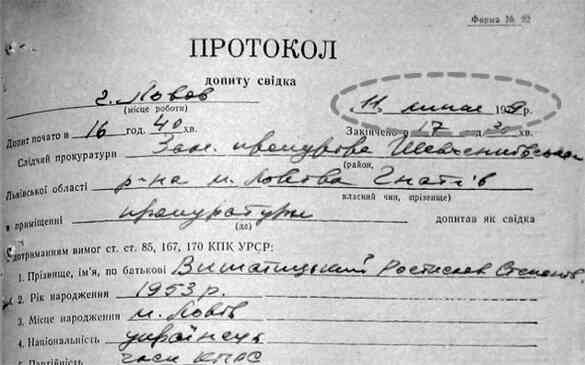 Форма № 22
ПРОТОКОЛ
допиту свідка
г. Львов
(місце роботи)
11 липня 1979 р.
Допит почато в 16 год. 40 хв.
Закінчено о 17 год. 30 хв.
Слідчий прокуратури Зам. прокурора Шевченківського
(район,
Львівської області р-на м. Львова Гнатів
власний чин, прізвище)
в приміщенні прокуратури допитав як свідка
(до)
з дотриманням вимог ст. ст. 85, 167, 170 КПК УРСР:
1. Прізвище, ім'я, по батькові Ростислав Степанов.
2. Рік народження 1953 р.
3. Місце народження м. Львів
4. Національність українець
5. Партійність член КПРС